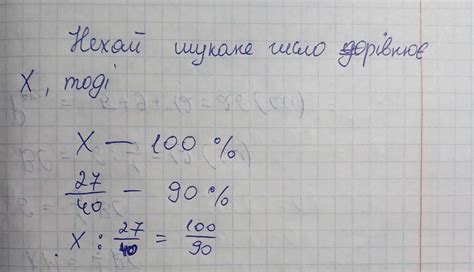 Нехай шукане число дорівнює
X, тоді
X — 100 %
27/40 — 90 %
X : 27/40 = 100/90